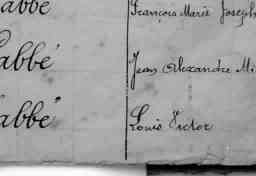 abbé
François Marie Joseph
abbé
Jean Alexandre Mi
"abbé"
Louis Victor